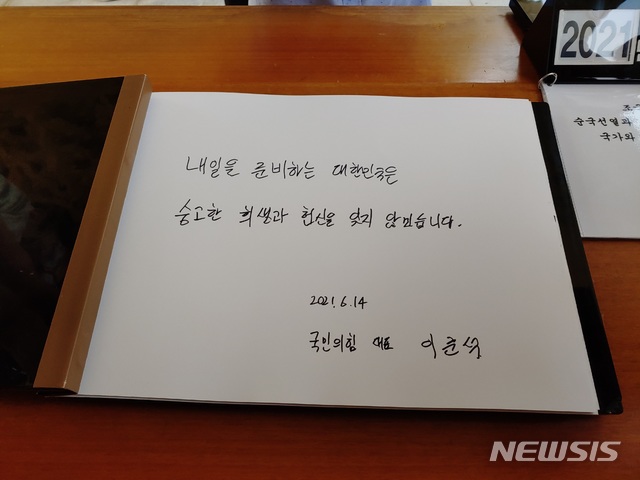 내일을 준비하는 대한민국은
숭고한 희생과 헌신을 잊지 않겠습니다.
2021.6.14
국민의힘 대표 이준석
2021
순국선열과
국가와
NEWSIS